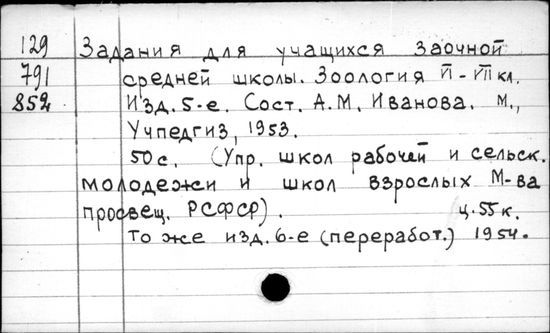 129 Задания для учащихся заочной
791 средней школы. Зоология VI-VII кл.
852 Изд. 5-е. Сост. А.М. Иванова. М.,
Учпедгиз, 1953.
50 с. (Упр. школ рабочей и сельск.
молодежи и школ взрослых М-ва
просвещ. РСФСР). ц. 55 к.
То же изд. 6-е (переработ.) 1954.